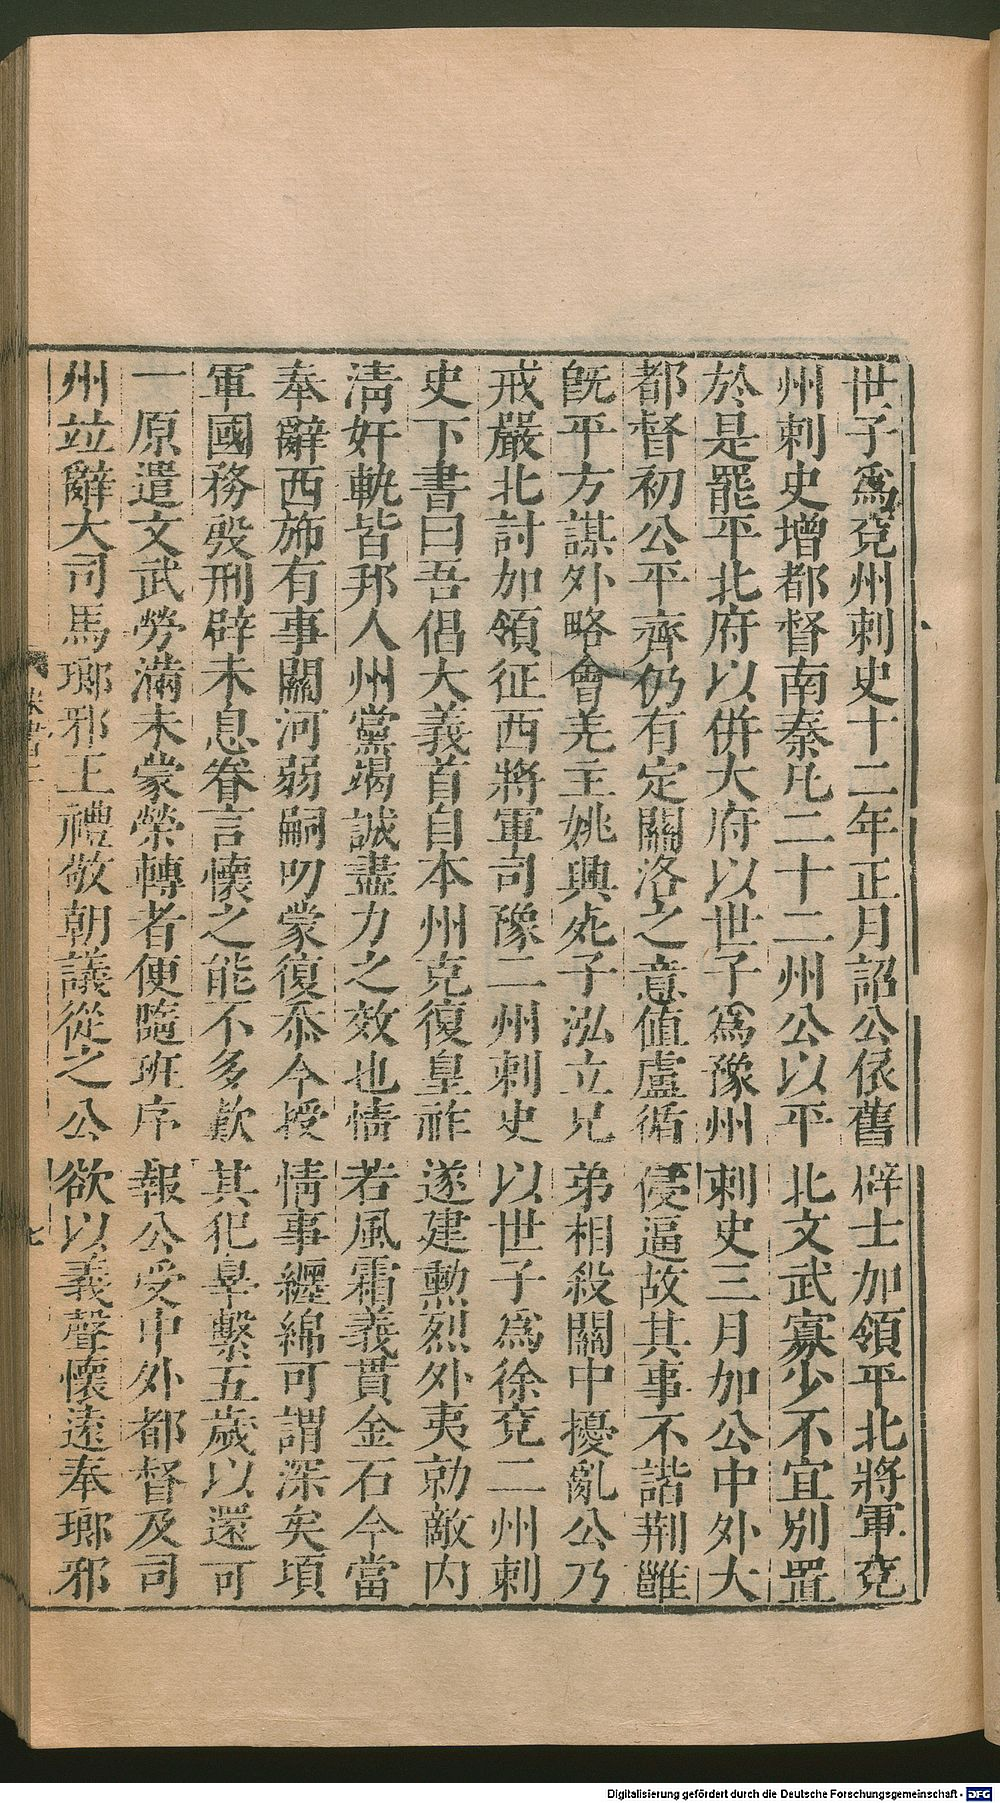 世子爲兗州刺史十二年正月詔公依舊辟士加領平北將軍兗
州刺史增都督南秦凡二十二州公以平北文武寡少不宜别置
於是罷平北府以併大府以世子爲豫州刺史三月加公中外大
都督初公平齊仍有定關洛之意值盧循侵逼故其事不諧荆雝
旣平方謀外略會羌主姚興死子泓立兄弟相殺關中擾亂公乃
戒嚴北討加領征西將軍司豫二州刺史以世子爲徐兗二州刺
史下書曰吾倡大義首自本州克復皇祚遂建勲烈外夷勍敵内
淸奸軌皆邦人州黨竭誠盡力之效也情若風霜義貫金石今當
奉辭西旆有事關河弱嗣叨蒙復忝今授情事纒綿可謂深矣頃
軍國務殷刑辟未息眷言懷之能不多歎其犯辠繫五歲以還可
一原遣文武勞滿未蒙榮轉者便隨班序報公受中外都督及司
州竝辭大司馬瑯邪王禮敬朝議從之公欲以義聲懷遠奉瑯邪
七
Digitalisierung gefördert durch die Deutsche Forschungsgemeinschaft - DFG